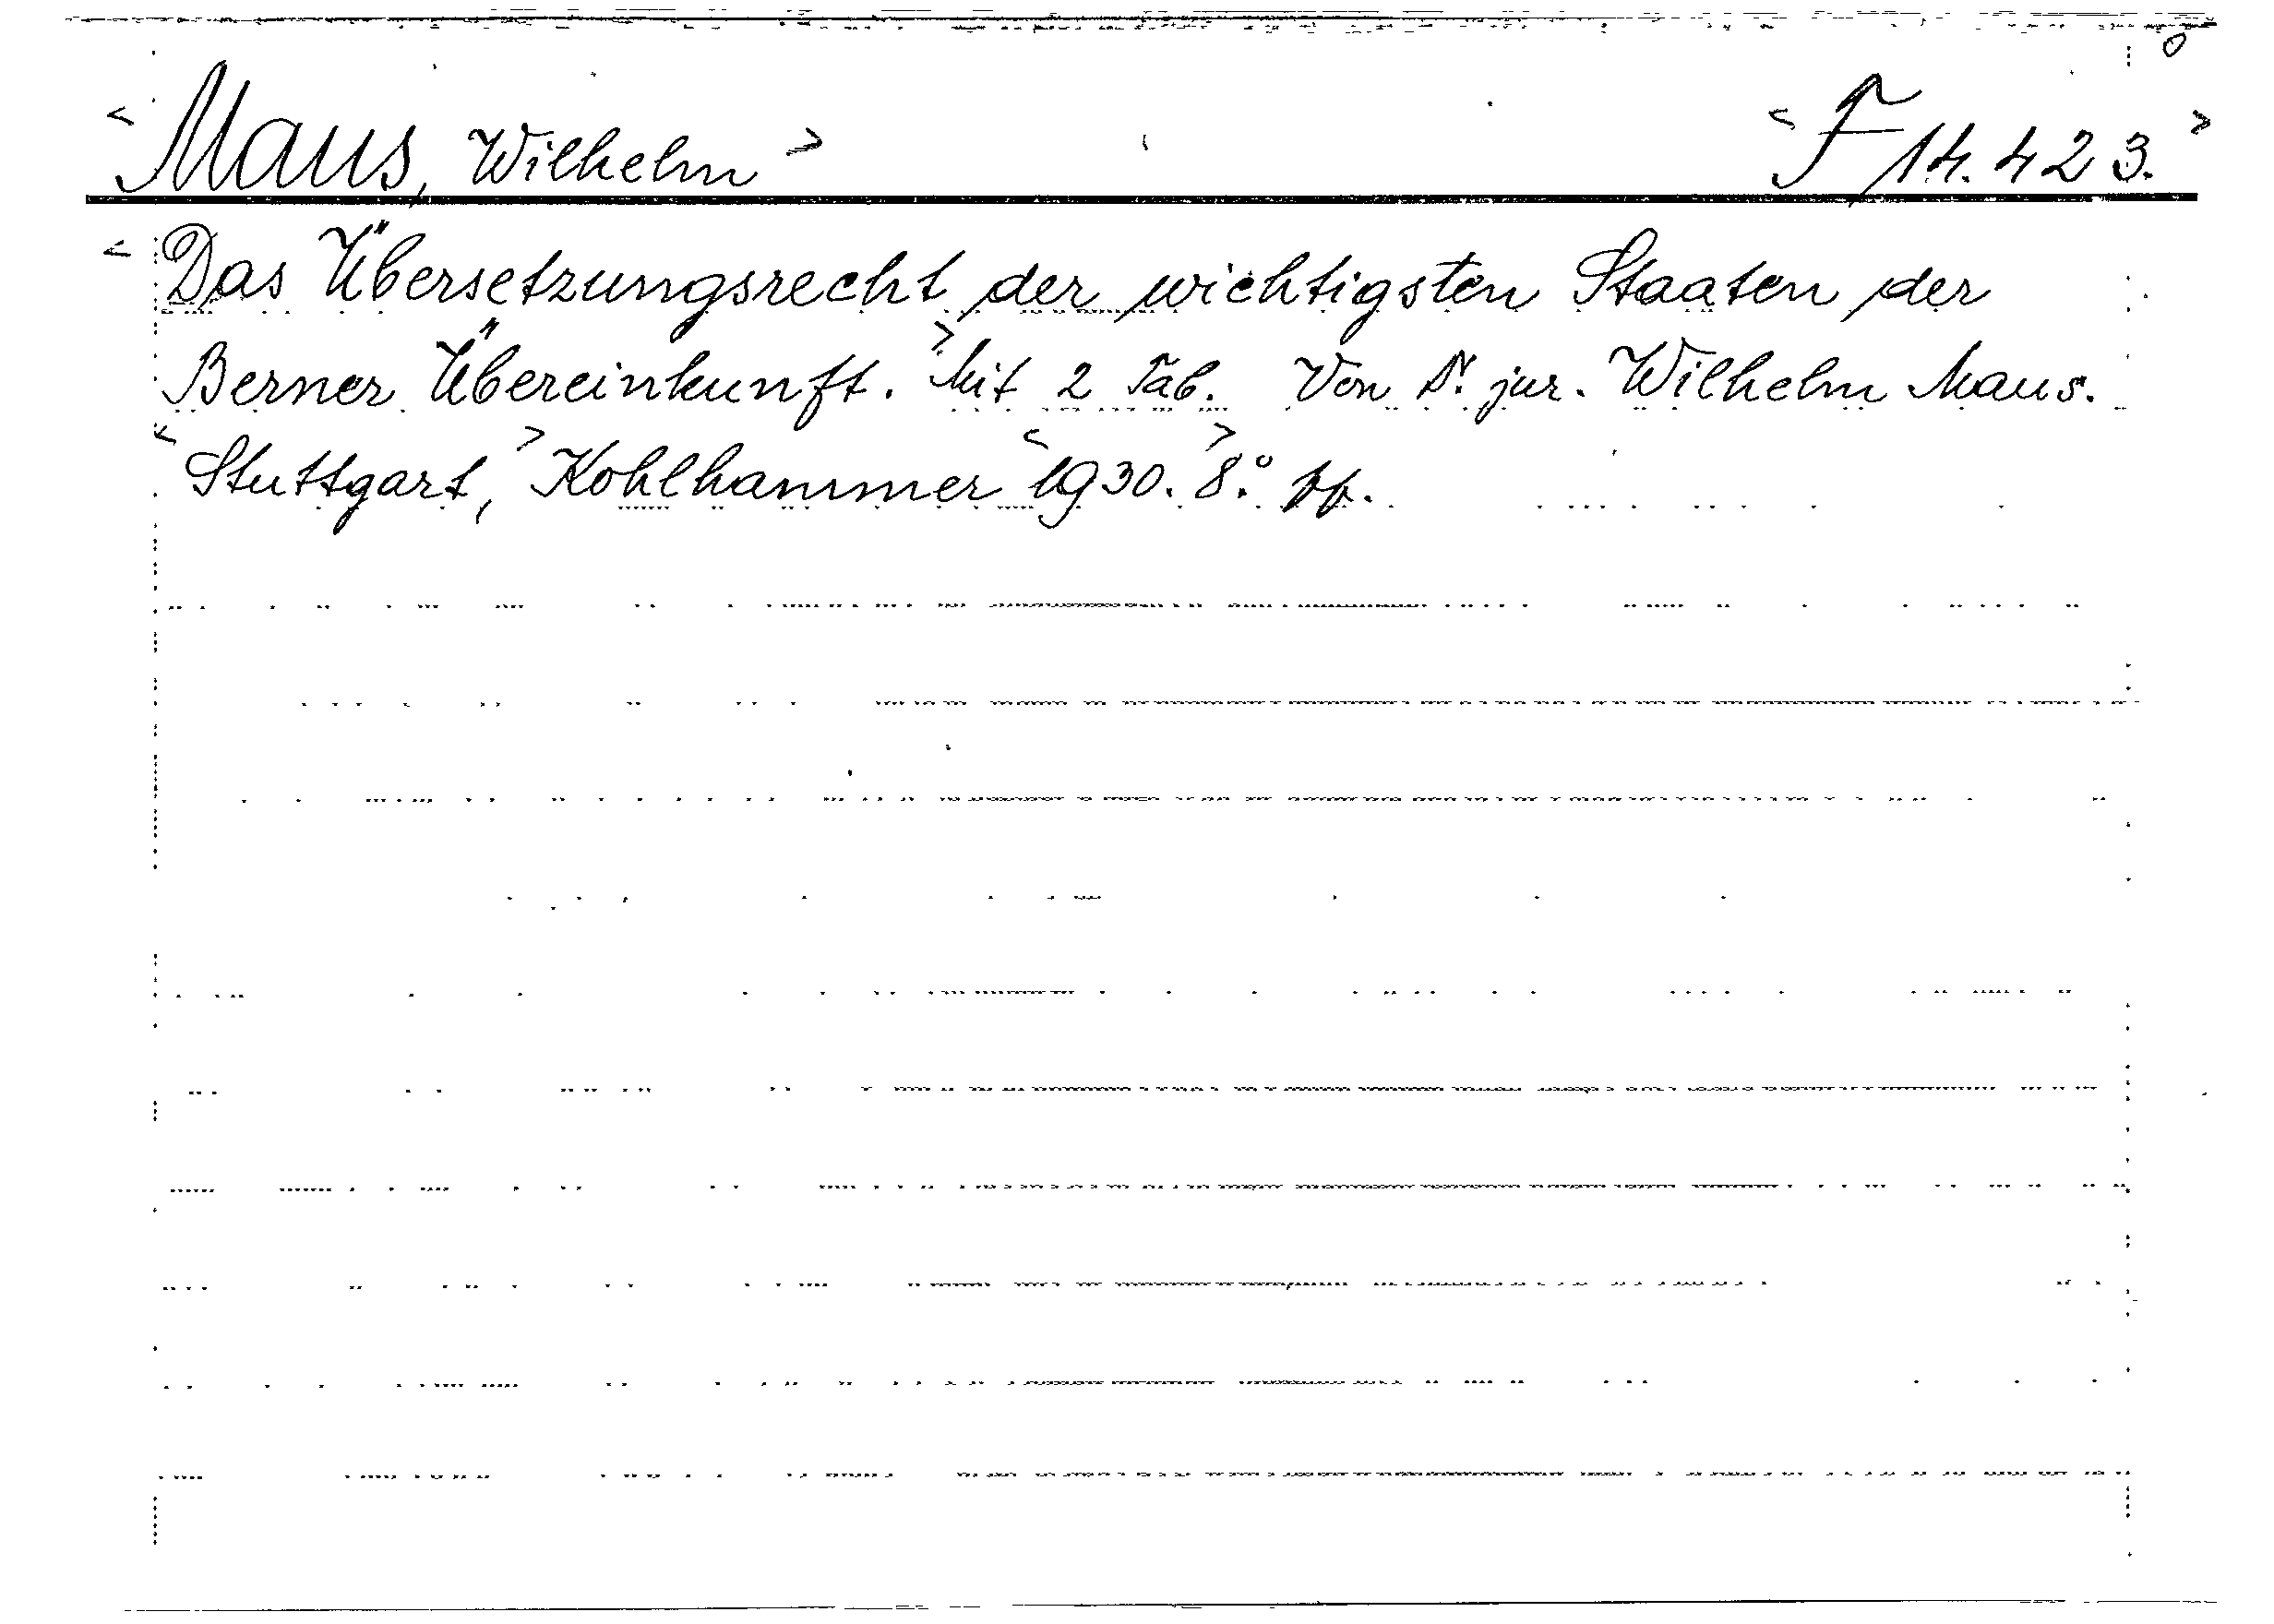 <Maus, Wilhelm> <F 14.423.>
<Das Übersetzungsrecht der wichtigsten Staaten der
Berner Übereinkunft.> Mit 2 Tab. Von Dr. jur. Wilhelm Maus.
<Stuttgart,> Kohlhammer <1930.> 8.°